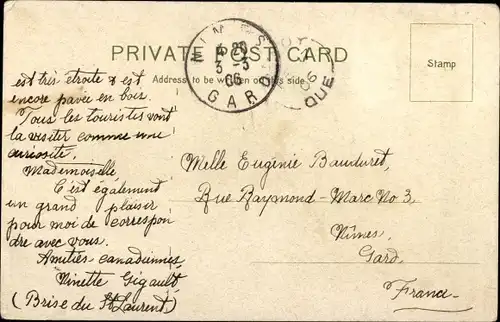 PRIVATE POST CARD
Address to be written on this side
Stamp
NIMES
4 20
3 - 3
06
GARD
06
QUE
est très étroite & est
encore pavée en bois.
Tous les touristes vont
la visiter comme une
curiosité.
Mademoiselle
C'est également
un grand plaisir
pour moi de correspon
dre avec vous.
Amitiés canadiennes
Ninette Gigault
(Brise du St Laurent)
Melle Eugénie Bauduret,
Rue Raymond-Marc No 3,
Nîmes,
Gard.
France.